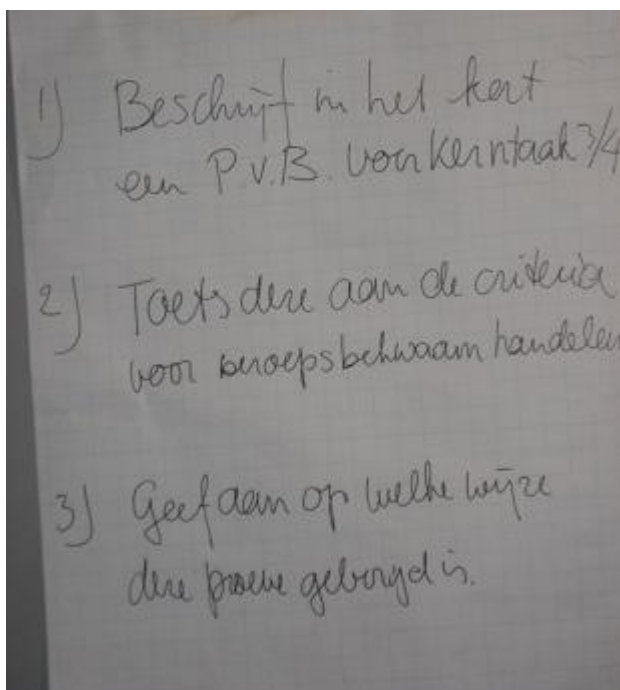 1) Beschrijf in het kort
een P.v.B. voor kerntaak 3/4
2) Toets deze aan de criteria
voor beroepsbekwaam handelen
3) Geef aan op welke wijze
deze proeve geborgd is.